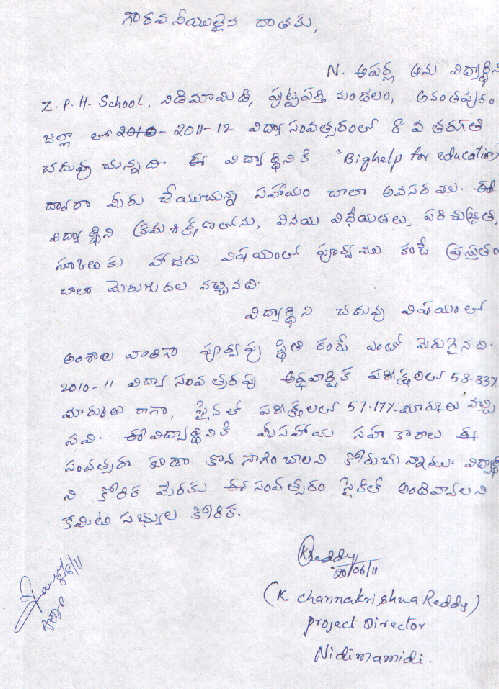 గౌరవనీయులైన దాతకు,
N. అపర్ణ అను విద్యార్థిని
Z. P. H. School, నిడిమామిడి, పుట్టపర్తి మండలం, అనంతపురం
జిల్లా లో 2010- 2011-12 విద్యా సంవత్సరంలో 8 వ తరగతి
చదువు చున్నది. ఈ విద్యార్థినికి "Bighelp for education
ద్వారా మీరు చేయుచున్న సహాయం చాలా అవసరము. ఈ
విద్యార్థిని క్రమశిక్షణలోను, వినయ విధేయతలు, పరిశుభ్రత,
స్కూలుకు హాజరు విషయంలో పూర్వము కంటే ప్రస్తుతం
చాలా మెరుగుదల వచ్చినది.
విద్యార్థిని చదువు విషయంలో
అంశాల వారిగా పూర్వపు స్థితి కంటే ఎంతో మెరుగైనది.
2010-11 విద్యా సంవత్సరపు అర్ధవార్షిక పరీక్షలలో 58.33%
మార్కులు రాగా, ఫైనల్ పరీక్షలలో 57.17% మార్కులు వచ్చి
నవి. ఈ విద్యార్థినికి మీ సహాయ సహకారాలు ఈ
సంవత్సరం కూడా కొనసాగించాలని కోరుచున్నాము. విద్యార్థి
ని కోరిక మేరకు ఈ సంవత్సరం సైకిల్ అందివ్వాలని
కమిటీ సభ్యుల కోరిక.
KReddy
20/06/11
(K channakrishna Reddy)
project Director
Nidimamidi